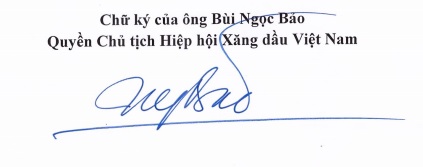 Chữ ký của ông Bùi Ngọc Bảo
Quyền Chủ tịch Hiệp hội Xăng dầu Việt Nam